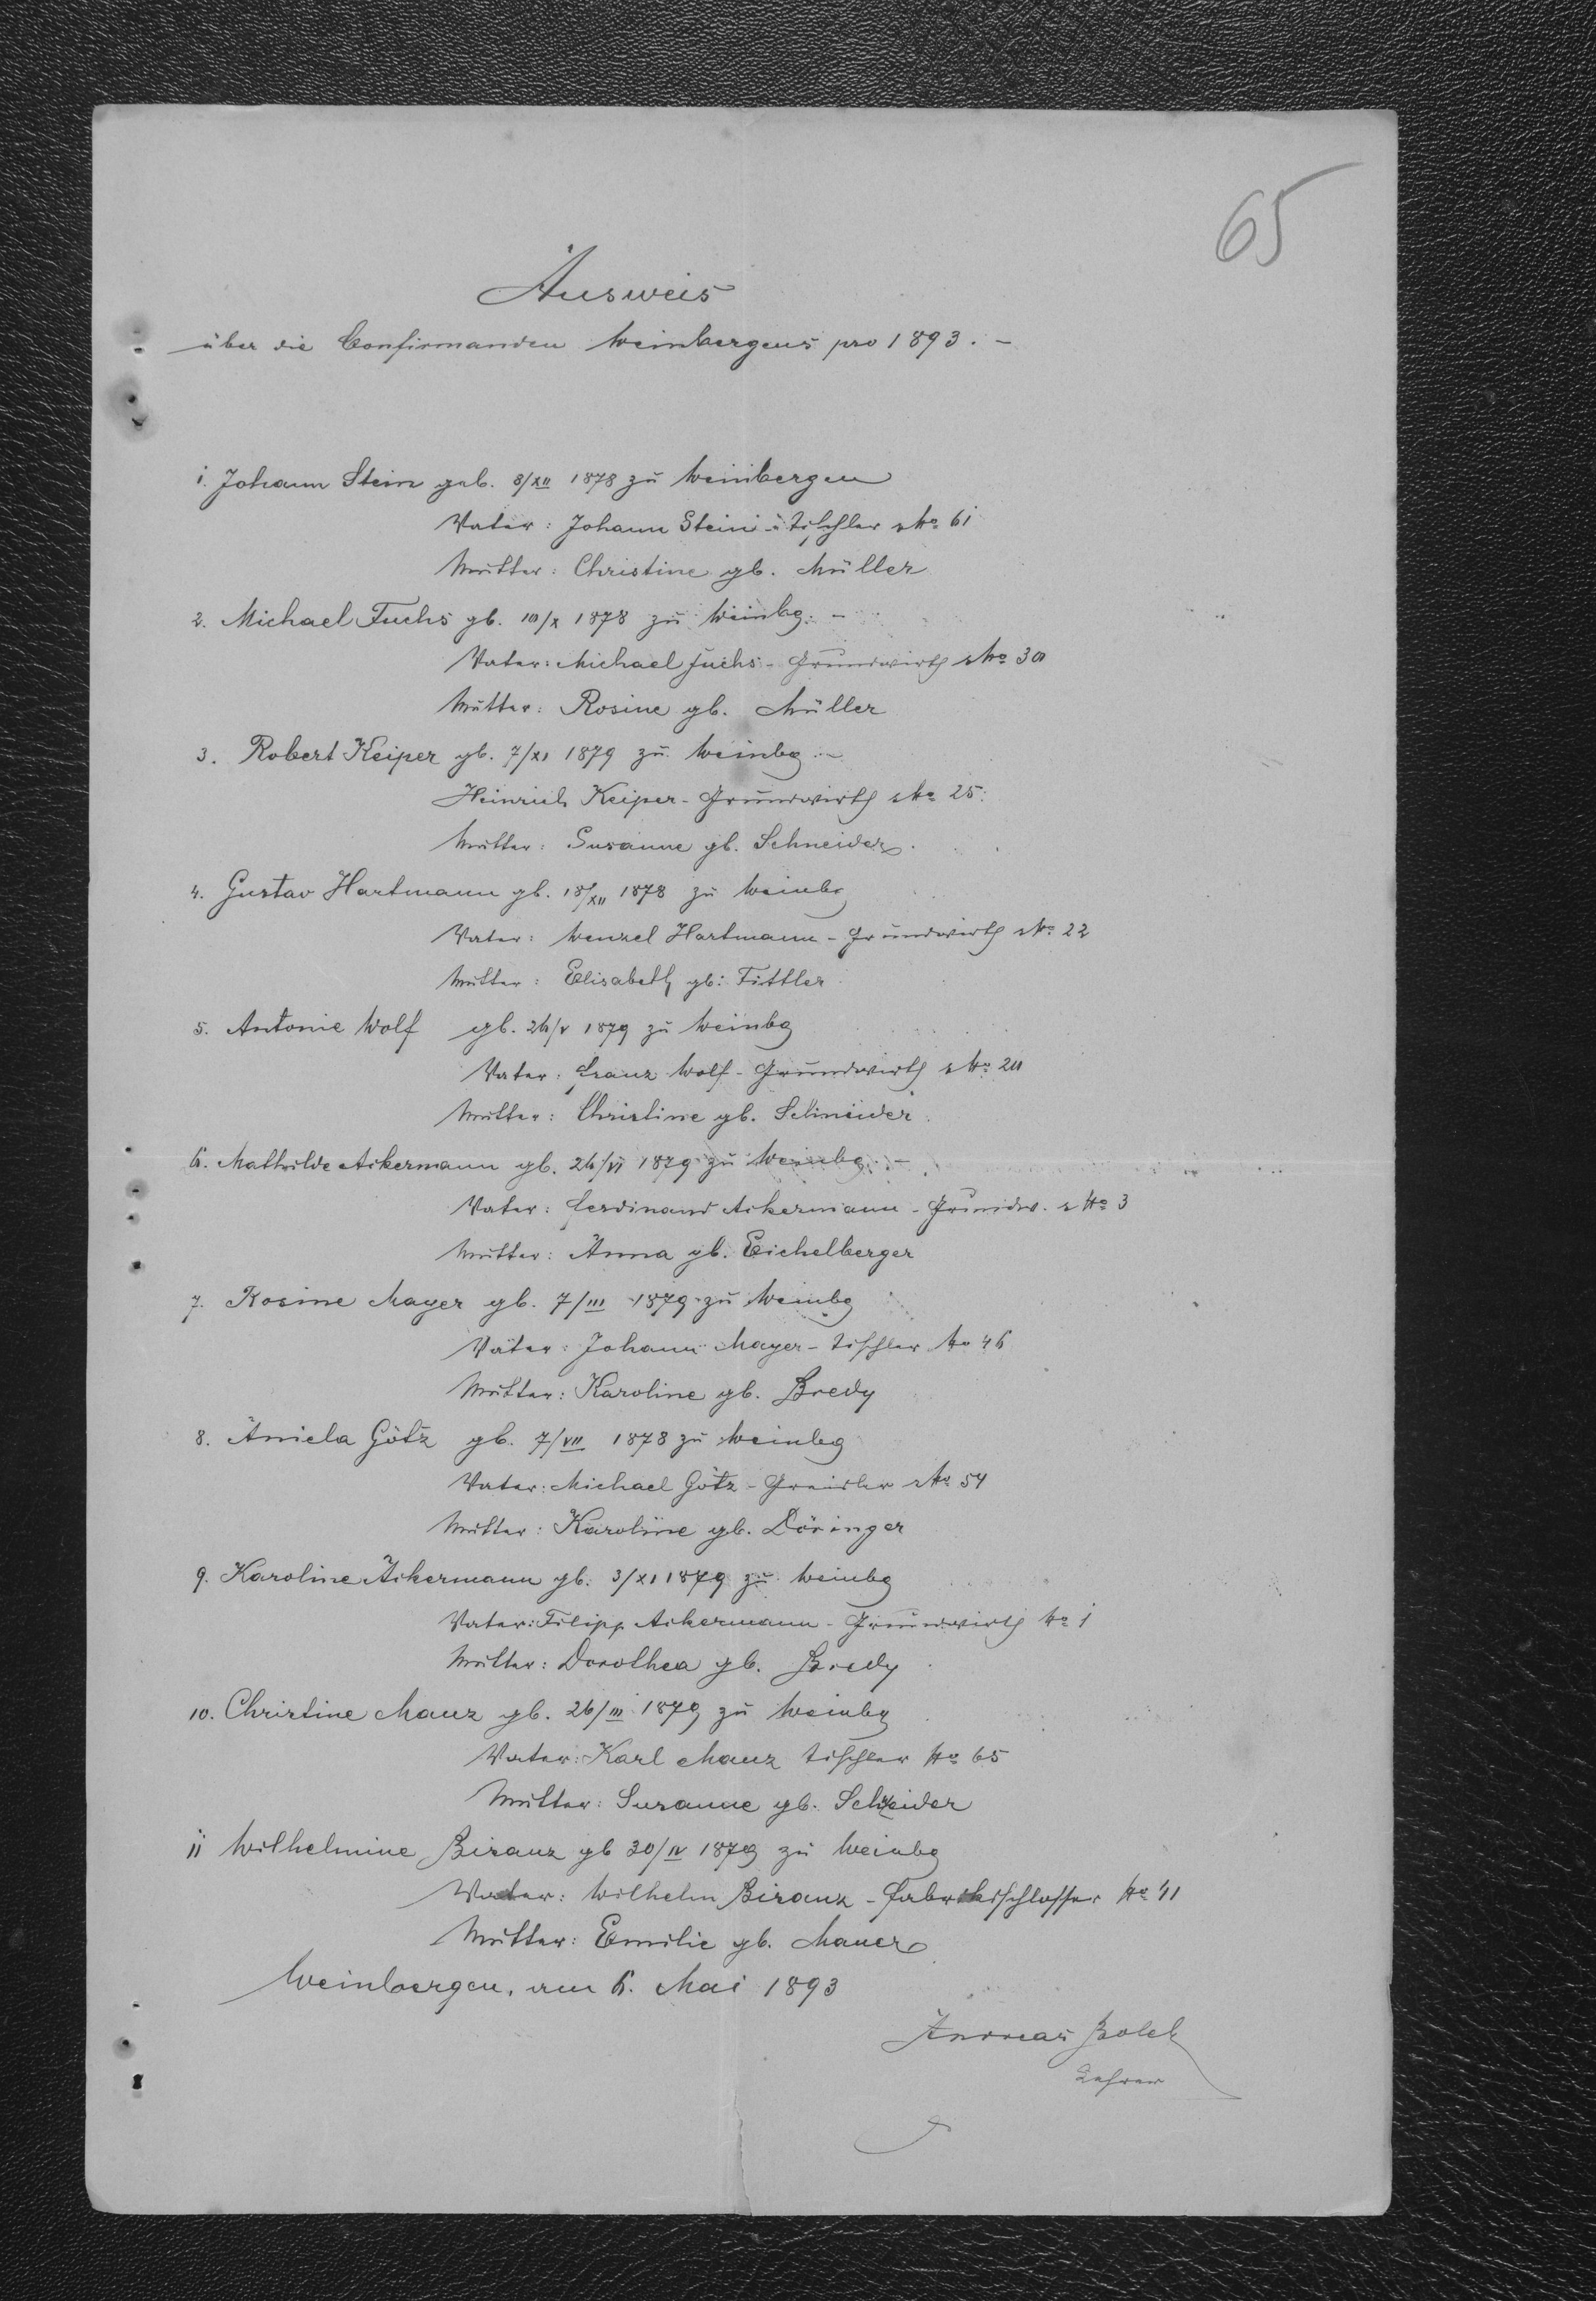 65
Ausweis
über die Confirmanden Weinbergens pro 1893. –
1. Johann Stein geb. 8/XII 1878 zu Weinbergen
Vater: Johann Stein - Tischler No 61
Mutter: Christine gb. Müller
2. Michael Fuchs gb. 10/X 1878 zu Weinbg. –
Vater: Michael Fuchs - Grundwirth No 30
Mutter: Rosine gb. Müller
3. Robert Keiper gb. 7/XI 1879 zu Weinbg. –
Heinrich Keiper - Grundwirth No 25.
Mutter: Susanne gb. Schneider.
4. Gustav Hartmann gb. 18/XII 1878 zu Weinbg
Vater: Wenzel Hartmann - Grundwirth No 22
Mutter: Elisabeth gb. Tittler
5. Antonie Wolf gb. 26/V 1879 zu Weinbg
Vater: Franz Wolf - Grundwirth No
Mutter: Christine gb. Schneider.
6. Mathilde Ackermann gb. 26/VI 1879 zu Weinbg. –
Vater: Ferdinand Ackermann - Grundw. No 3
Mutter: Anna gb. Eichelberger
7. Rosine Mayer gb. 7/III 1879 zu Weinbg
Vater: Johann Mayer - Tischler No 46
Mutter: Karoline gb. Bredy
8. Aniela Götz gb. 7/VII 1878 zu Weinbg
Vater: Michael Götz - No 54
Mutter: Karoline gb. Döringer
9. Karoline Ackermann gb. 3/XI 1879 zu Weinbg
Vater: Filipp Ackermann - Grundwirth No 1
Mutter: Dorothea gb. Bredy
10. Christine Manz gb. 26/III 1879 zu Weinbg
Vater: Karl Manz Tischler No 65
Mutter: Susanne gb. Schneider
11 Wilhelmine Biranz gb 30/IV 1879 zu Weinbg
Vater: Wilhelm Biranz - Fabriksschlosser No 41
Mutter: Emilie gb. Mauer
Weinbergen, am 6. Mai 1893
Andreas Bolek
Lehrer